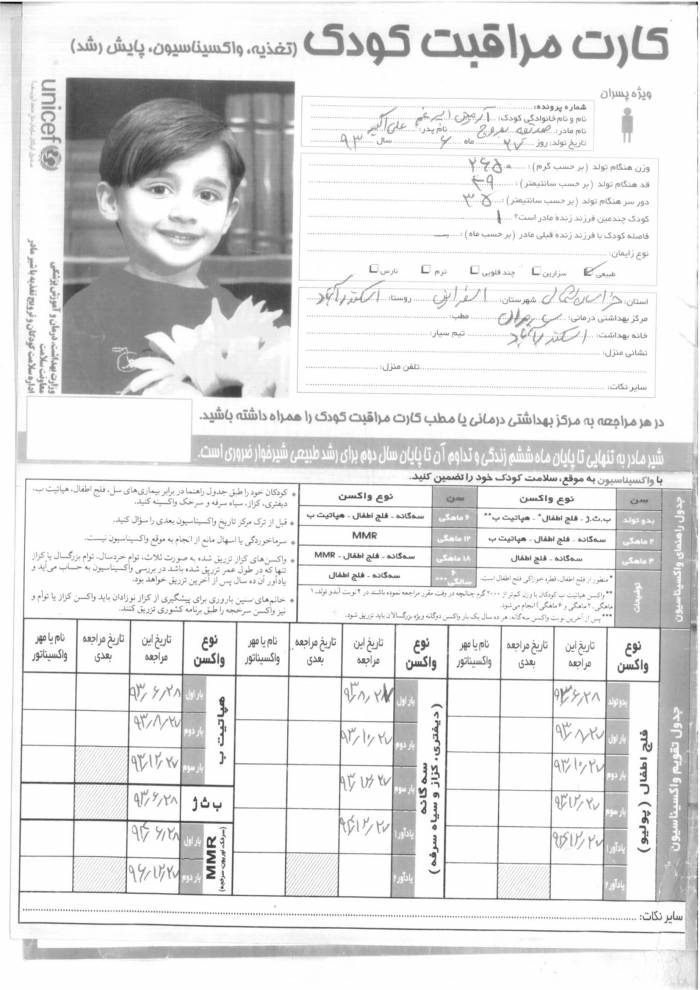 کارت مراقبت کودک (تغذیه، واکسیناسیون، پایش رشد)
ویژه پسران
unicef
وزارت بهداشت، درمان و آموزش پزشکی
معاونت سلامت
اداره سلامت کودکان و ترویج تغذیه با شیر مادر
شماره پرونده:
نام و نام خانوادگی کودک:
نام مادر: نام پدر: علی اکبر
تاریخ تولد: روز ۲۷ ماه ۶ سال ۹۳
وزن هنگام تولد (بر حسب گرم): ۲۶۵۰
قد هنگام تولد (بر حسب سانتیمتر): ۴۹
دور سر هنگام تولد (بر حسب سانتیمتر): ۳۵
کودک چندمین فرزند زندهٔ مادر است؟ ۱
فاصله کودک با فرزند زنده قبلی مادر (بر حسب ماه): –
نوع زایمان:
طبیعی ✓ سزارین چند قلویی ترم نارس
استان: خراسان شمالی شهرستان: اسفراین روستا: اسکندرآباد
مرکز بهداشتی درمانی: مطب:
خانه بهداشت: اسکندرآباد تیم سیار:
نشانی منزل:
تلفن منزل:
سایر نکات:
در هر مراجعه به مرکز بهداشتی درمانی یا مطب کارت مراقبت کودک را همراه داشته باشید.
شیر مادر به تنهایی تا پایان ماه ششم زندگی و تداوم آن تا پایان سال دوم برای رشد طبیعی شیرخوار ضروری است.
با واکسیناسیون به موقع، سلامت کودک خود را تضمین کنید.
جدول راهنمای واکسیناسیون
سن نوع واکسن سن نوع واکسن
بدو تولد ب.ث.ژ - فلج اطفال* - هپاتیت ب** ۶ ماهگی سه‌گانه - فلج اطفال - هپاتیت ب
۲ ماهگی سه‌گانه - فلج اطفال - هپاتیت ب ۱۲ ماهگی MMR
۴ ماهگی سه‌گانه - فلج اطفال ۱۸ ماهگی سه‌گانه - فلج اطفال - MMR
۶ سالگی *** سه‌گانه - فلج اطفال
توضیحات
* منظور از فلج اطفال، قطره خوراکی فلج اطفال است.
** واکسن هپاتیت ب کودکان با وزن کمتر از ۲۰۰۰ گرم چنانچه در وقت مقرر مراجعه نموده باشند در ۴ نوبت (بدو تولد، ۱ ماهگی، ۲ ماهگی و ۶ ماهگی) انجام می‌شود.
*** پس از آخرین نوبت واکسن سه‌گانه، هر ده سال یک بار واکسن دوگانه ویژه بزرگسالان باید تزریق شود.
• کودکان خود را طبق جدول راهنما در برابر بیماری‌های سل، فلج اطفال، هپاتیت ب، دیفتری، کزاز، سیاه سرفه و سرخک واکسینه کنید.
• قبل از ترک مرکز تاریخ واکسیناسیون بعدی را سؤال کنید.
• سرماخوردگی یا اسهال مانع از انجام به موقع واکسیناسیون نیست.
• واکسن‌های کزاز تزریق شده به صورت ثلاث، توام خردسال، توام بزرگسال یا کزاز تنها که در طول عمر تزریق شده باشد در بررسی واکسیناسیون به حساب می‌آید و یادآور آن ده سال پس از آخرین تزریق خواهد بود.
• خانم‌های سنین باروری برای پیشگیری از کزاز نوزادان باید واکسن کزاز یا توأم و نیز واکسن سرخجه را طبق برنامه کشوری تزریق کنند.
جدول تقویم واکسیناسیون
نوع واکسن تاریخ این مراجعه تاریخ مراجعه بعدی نام یا مهر واکسیناتور
فلج اطفال (پولیو)
بدو تولد ۹۳/۶/۲۸
بار اول ۹۳/۸/۲۷
بار دوم ۹۳/۱۰/۲۷
بار سوم ۹۳/۱۲/۲۷
یادآور ۱ ۹۴/۱۲/۲۷
یادآور ۲
نوع واکسن تاریخ این مراجعه تاریخ مراجعه بعدی نام یا مهر واکسیناتور
سه گانه (دیفتری، کزاز و سیاه سرفه)
بار اول
بار دوم ۹۳/۱۰/۲۷
بار سوم ۹۳/۱۲/۲۷
یادآور ۱ ۹۴/۱۲/۲۷
یادآور ۲
نوع واکسن تاریخ این مراجعه تاریخ مراجعه بعدی نام یا مهر واکسیناتور
هپاتیت ب
بار اول ۹۳/۶/۲۸
بار دوم ۹۳/۸/۲۷
بار سوم ۹۳/۱۲/۲۷
ب ث ژ ۹۳/۶/۲۸
MMR (سرخک، اوریون، سرخجه)
بار اول ۹۴/۶/۲۸
بار دوم ۹۴/۱۲/۲۷
سایر نکات: